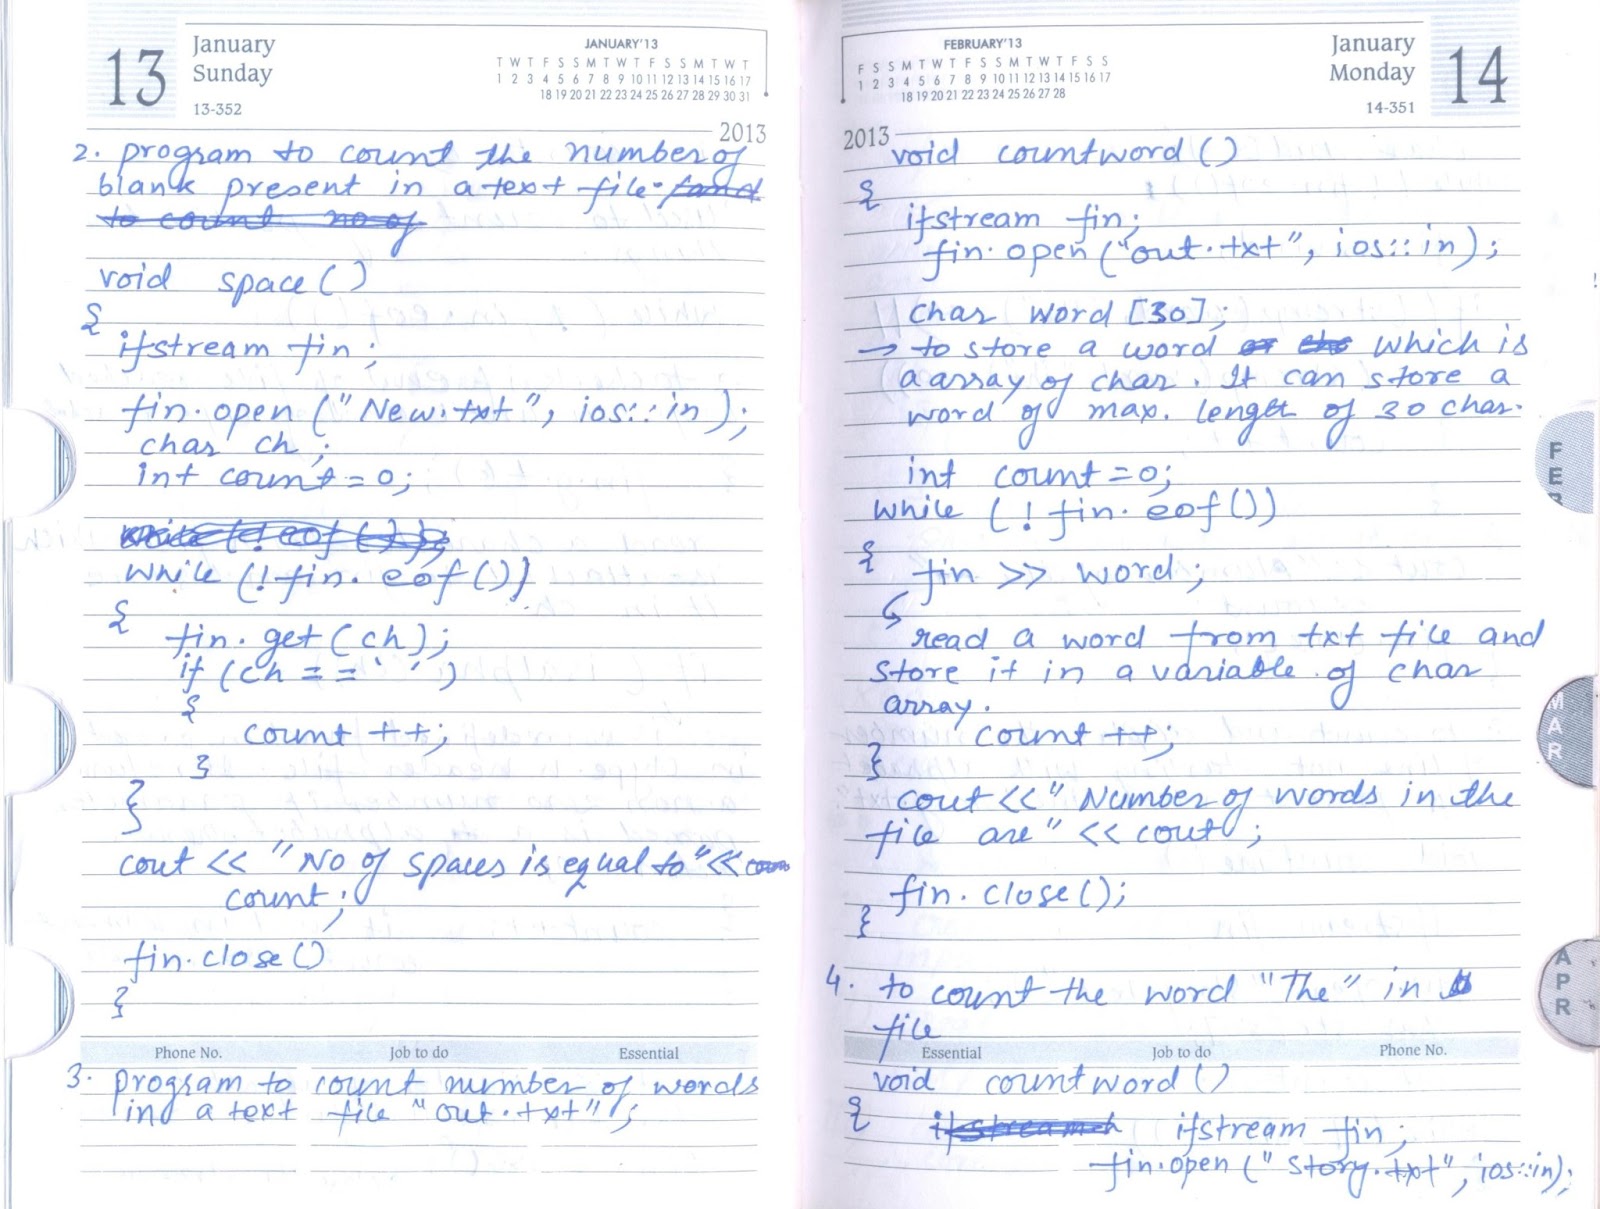 13
January
Sunday
13-352
JANUARY'13
T W T F S S M T W T F S S M T W T
1 2 3 4 5 6 7 8 9 10 11 12 13 14 15 16 17
18 19 20 21 22 23 24 25 26 27 28 29 30 31
2013
2. program to count the number of
blank present in a text file.
to count no of
void space()
{
ifstream fin;
fin.open("New.txt", ios::in);
char ch;
int count = 0;
while (!eof());
while (!fin.eof())
{
fin.get(ch);
if (ch == ' ')
{
count ++;
}
}
cout << "No of spaces is equal to" <<
count;
fin.close()
}
Phone No. Job to do Essential
3. program to count number of words
in a text file "out.txt";
FEBRUARY'13
F S S M T W T F S S M T W T F S S
1 2 3 4 5 6 7 8 9 10 11 12 13 14 15 16 17
18 19 20 21 22 23 24 25 26 27 28
January
Monday
14-351
14
2013
void countword()
{
ifstream fin;
fin.open("out.txt", ios::in);
char word[30];
→ to store a word or the which is
a array of char. It can store a
word of max. lenget of 30 char.
int count = 0;
while (!fin.eof())
{
fin >> word;
read a word from txt file and
store it in a variable of char
array.
count ++;
}
cout << "Number of words in the
file are" << cout;
fin.close();
}
4. to count the word "The" in
file
Essential Job to do Phone No.
void countword()
{
ifstream fin;
fin.open("Story.txt", ios::in);
FEB
MAR
APR